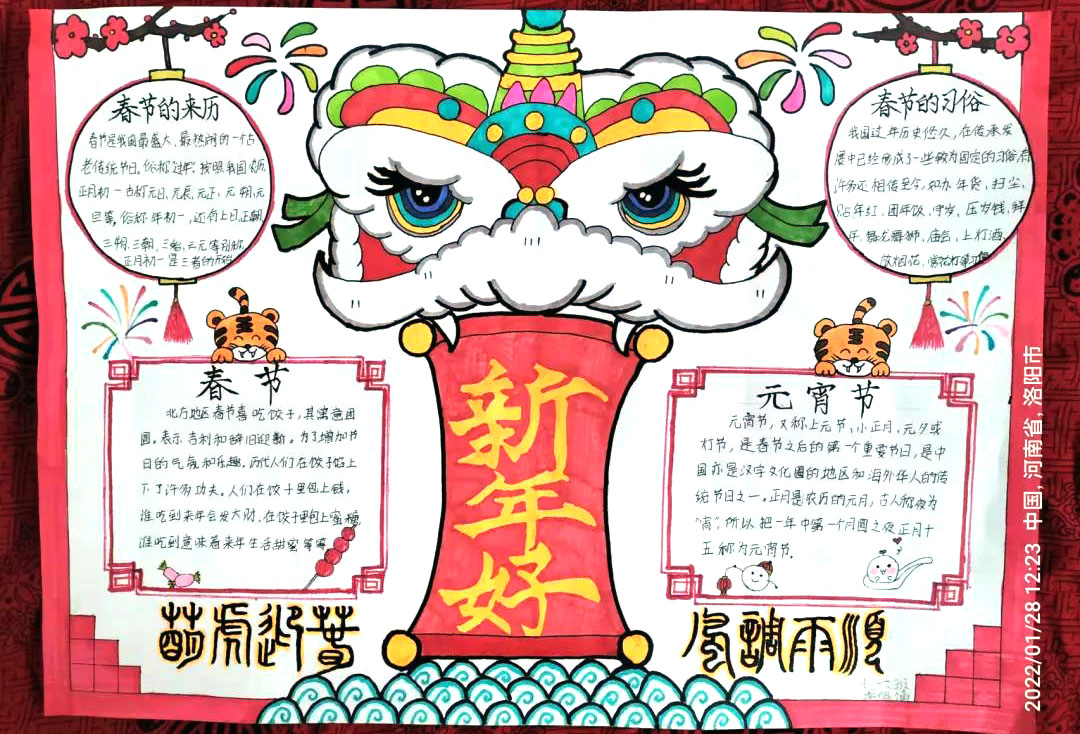 春节的来历
春节是我国最盛大、最热闹的一个古
老传统节日。俗称"过年"。按照我国农历,
正月初一古称元日、元辰、元正、元朔、元
旦等,俗称年初一,还有上日、正朝、
三朔、三朝、三始、三元等别称,
正月初一是三者的开始
春节的习俗
我国过年历史悠久,在传承发
展中已经形成了一些较为固定的习俗,有
许多还相传至今,如办年货、扫尘、
贴年红、团年饭、守岁、压岁钱、拜
年、舞龙舞狮、庙会、上灯酒、
放烟花、赏花灯等习俗
春节
北方地区春节喜吃饺子,其寓意团
圆。表示吉利和辞旧迎新。为了增加节
日的气氛和乐趣,历代人们在饺子馅上
下了许多功夫。人们在饺子里包上钱,
谁吃到来年会发大财。在饺子里包上蜜糖
谁吃到意味着来年生活甜蜜等等
新
年
好
元宵节
元宵节,又称上元节、小正月、元夕或
灯节,是春节之后的第一个重要节日,是中
国亦是汉字文化圈的地区和海外华人的传
统节日之一。正月是农历的元月,古人称夜为
"宵",所以把一年中第一个月圆之夜正月十
五称为元宵节。
萌虎迎春
风调雨顺
2022/01/28 12:23 中国,河南省,洛阳市